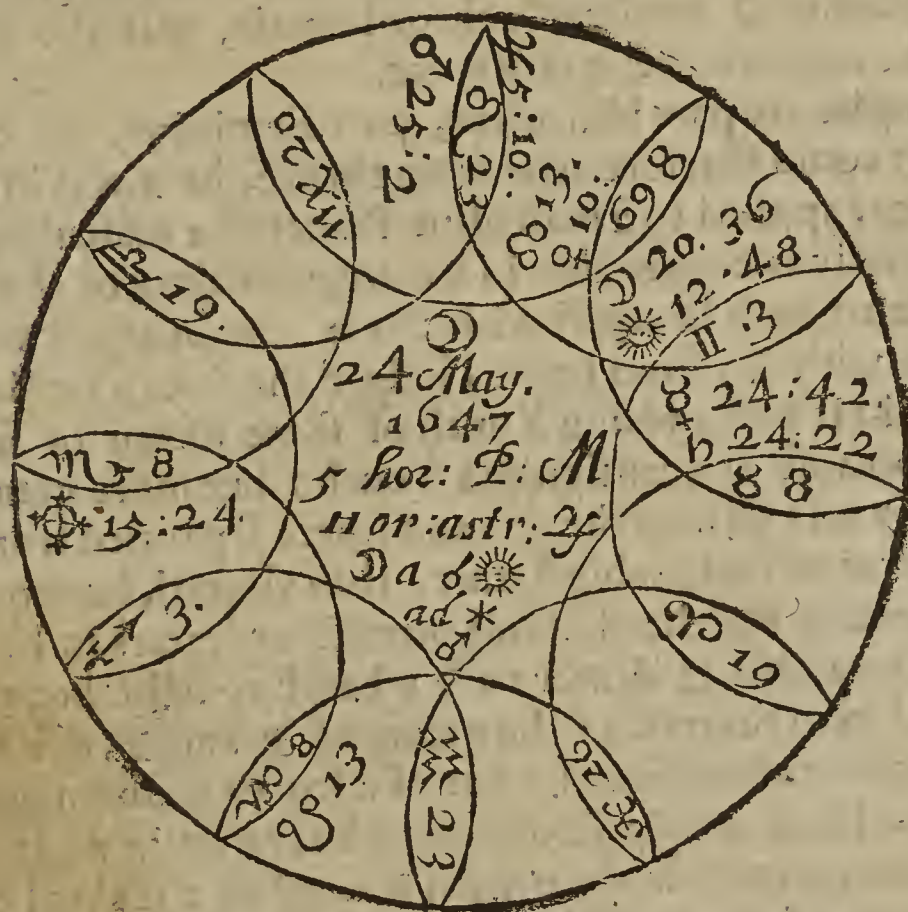 ♂ 25:2
♌ 23
♃ 5:10:
☊ 13.
♀ 10:
♋ 8
☽ 20. 36
☉ 12.48
♊ .3
☿ 24:42
♄ 24:22
♉ 8
♈ 19
♓ 26
♒ 23
☋ 13
♑ 8
♐ 3.
⊕ 15:24
♏ 8
♎ 19.
♍ 20
☽
24 May.
1647
5 hor: P: M
Hor: astr: ♃
☽ a ☌ ☉
ad ⚹
♂